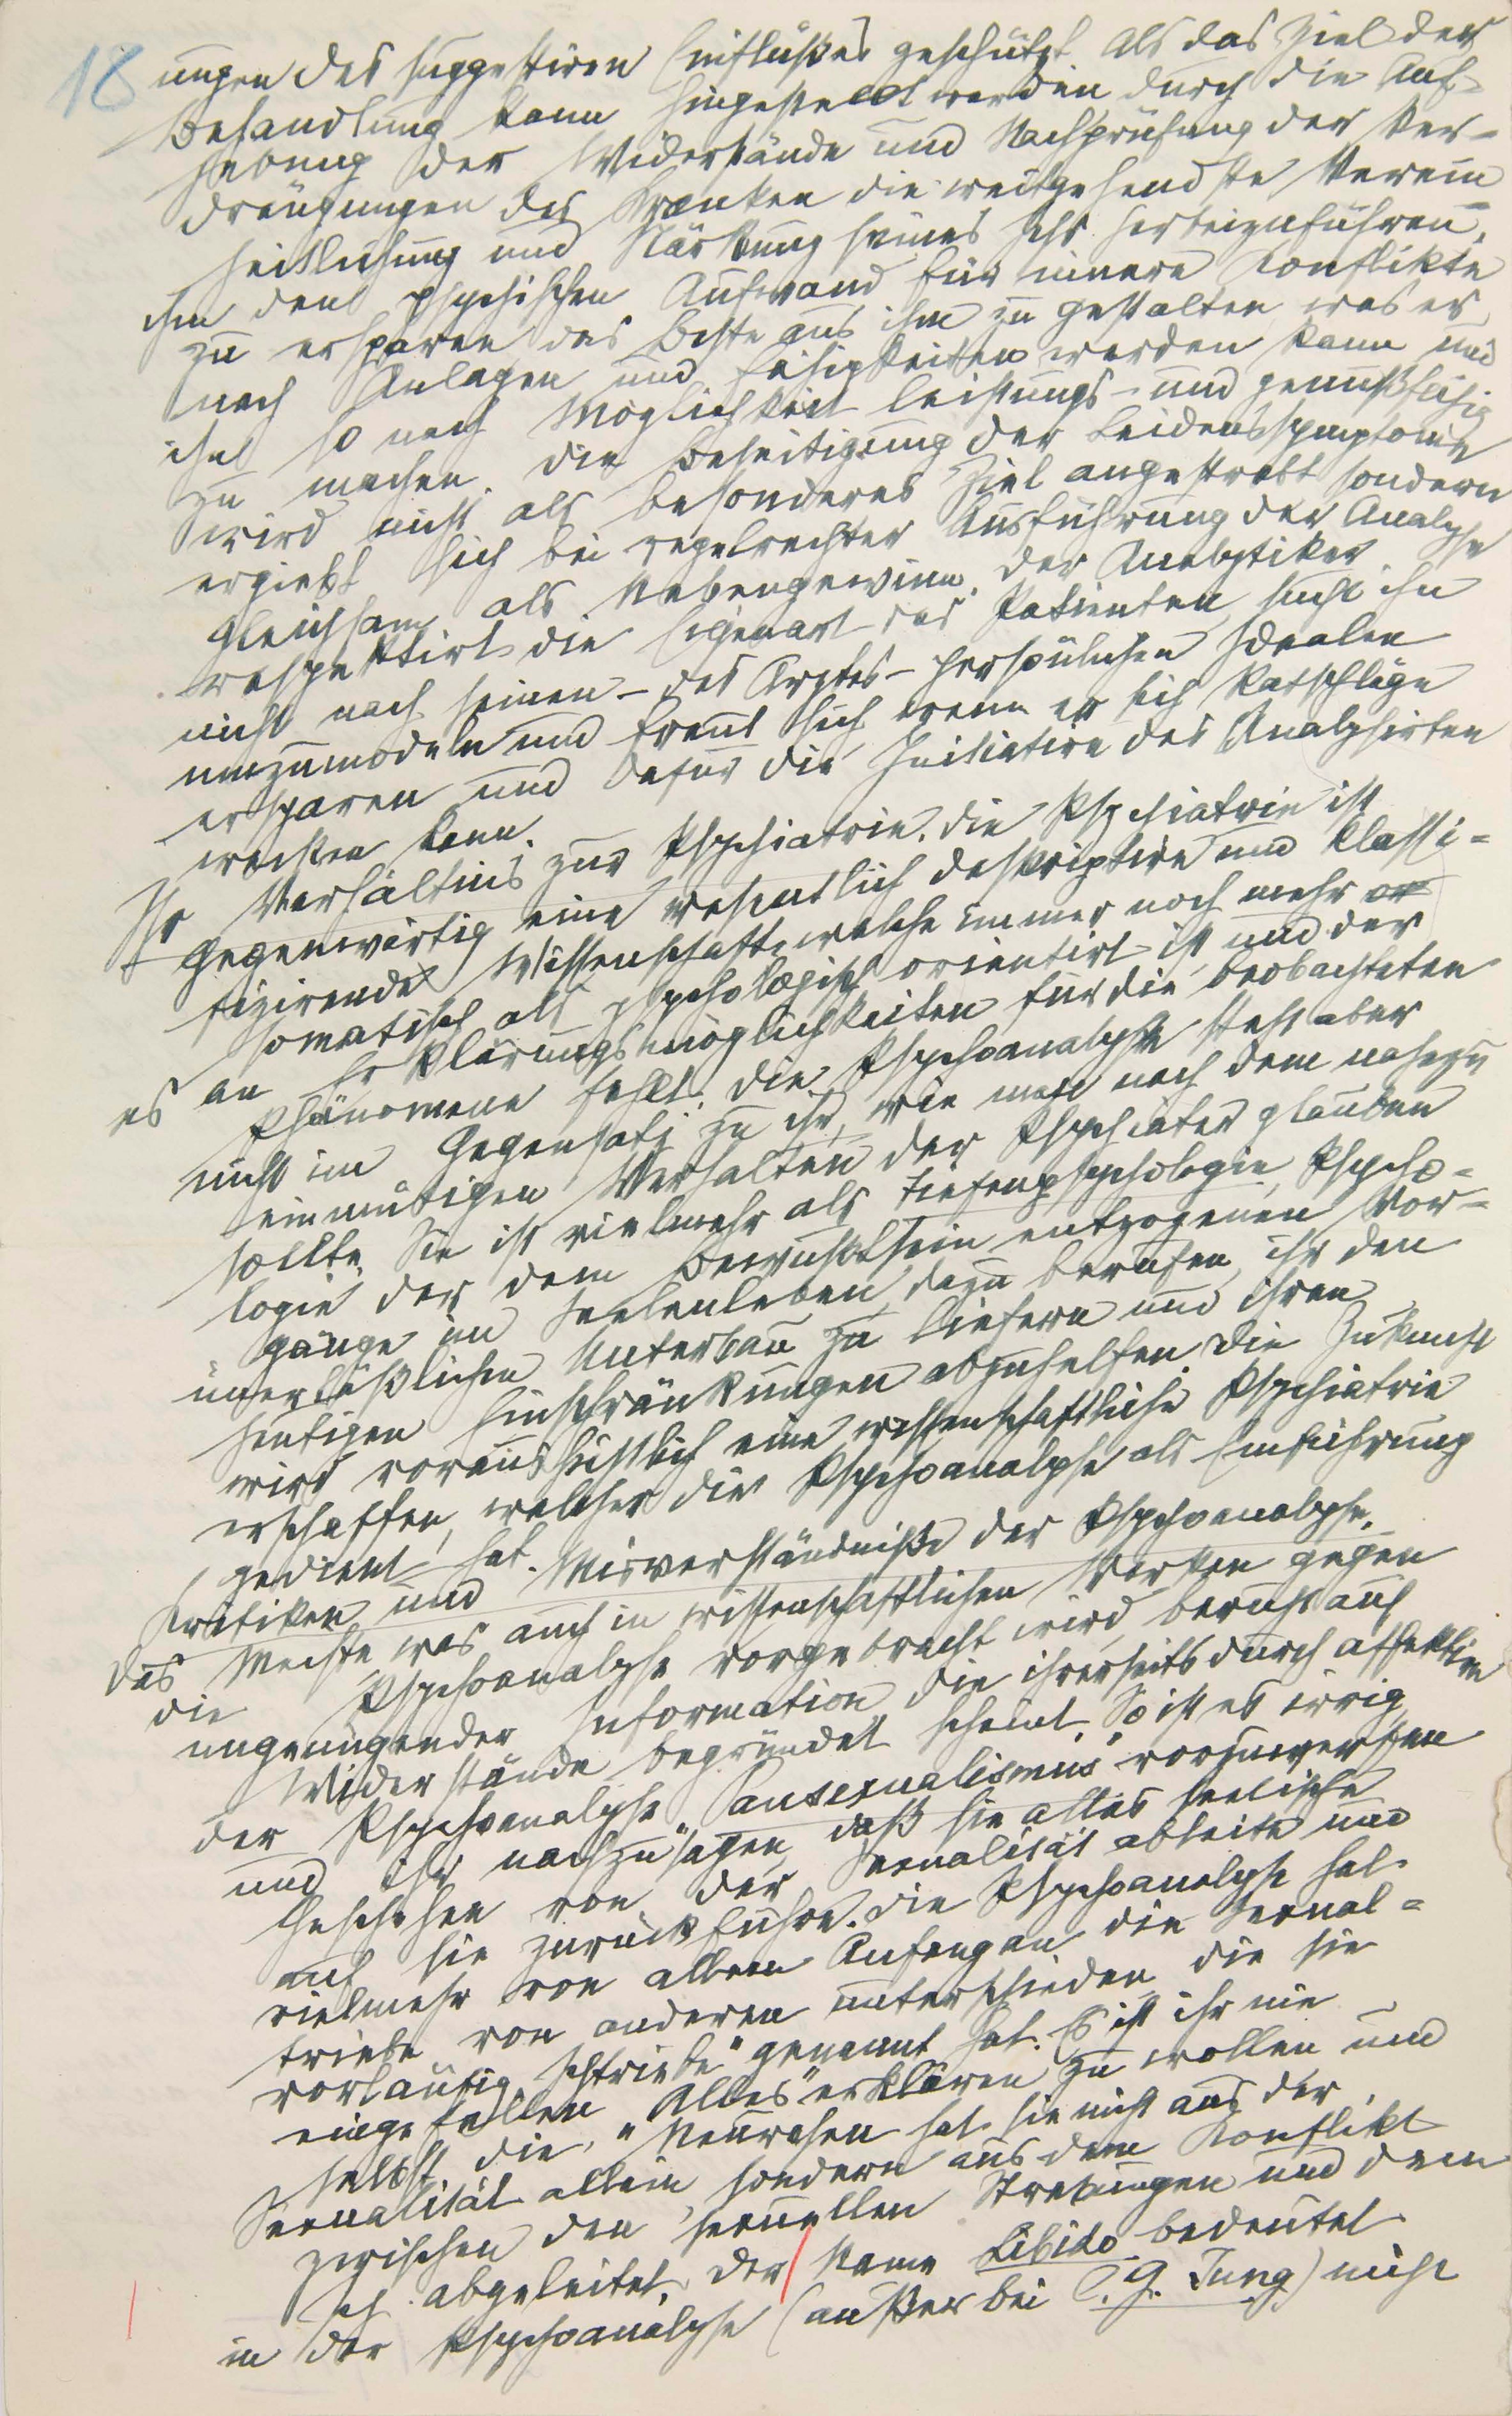 18
ungen des suggestiven Einflußes geschützt. Als das Ziel der
Behandlung kann hingestellt werden durch die Auf-
hebung der Widerstände und Nachprüfung der Ver-
drängungen des Kranken die weitgehendste Verein
heitlichung und Stärkung seines Ichs herbeizuführen,
ihm den psychischen Aufwand für innere Konflikte
zu ersparen das Beste aus ihm zu gestalten was er
nach Anlagen und Fähigkeiten werden kann und
ihn so nach Möglichkeit leistungs- und genußfähig
zu machen. Die Beseitigung der Leidenssymptome
wird nicht als besonderes Ziel angestrebt sondern
ergiebt sich bei regelrechter Ausführung der Analyse
gleichsam als Nebengewinn. Der Analytiker
respektirt die Eigenart des Patienten, sucht ihn
nicht nach seinen - des Arztes - persönlichen Idealen
umzumodeln und freut sich wenn er sich Ratschläge
ersparen und dafür die Initiative des Analysirten
wecken kann.
Ihr Verhältnis zur Psychiatrie. Die Psychiatrie ist
gegenwärtig eine wesentlich deskriptive und klassi-
fizirende Wissenschaft, welche immer noch mehr or
somatisch als psychologisch orientirt ist und der
es an Erklärungsmöglichkeiten für die beobachteten
Phänomene fehlt. Die Psychoanalyse steht aber
nicht im Gegensatz zu ihr, wie man nach dem nahezu
einmütigen Verhalten der Psychiater glauben
sollte. Sie ist vielmehr als Tiefenpsychologie, Psycho-
logie der dem Bewußtsein entzogenen Vor-
gänge im Seelenleben, dazu berufen, ihr den
unerläßlichen Unterbau zu liefern und ihren
heutigen Einschränkungen abzuhelfen. Die Zukunft
wird voraussichtlich eine wissenschaftliche Psychiatrie
erschaffen, welcher die Psychoanalyse als Einführung
gedient hat.
Kritiken und Misverständniße der Psychoanalyse.
Das Meiste was auch in wissenschaftlichen Werken gegen
die Psychoanalyse vorgebracht wird, beruht auf
ungenügender Information die ihrerseits durch affektive
Widerstände begründet scheint. So ist es irrig
der Psychoanalyse „Pansexualismus" vorzuwerfen
und ihr nachzusagen, daß sie alles seelische
Geschehen von der Sexualität ableite und
auf sie zurückführe. Die Psychoanalyse hat
vielmehr von allem Anfang an die Sexual-
triebe von anderen unterschieden, die sie
vorläufig „Ichtriebe" genannt hat. Es ist ihr nie
eingefallen „Alles" erklären zu wollen und
selbst die Neurosen hat sie nicht aus der
Sexualität allein sondern aus dem Konflikt
zwischen den sexuellen Strebungen und dem
Ich abgeleitet. Der Name Libido bedeutet
in der Psychoanalyse (außer bei C. G. Jung) nicht